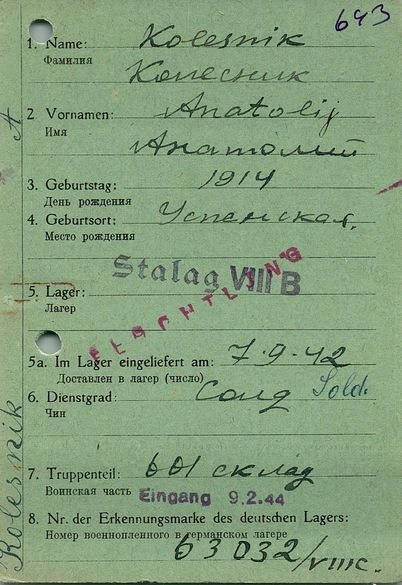 643
1. Name: Kolesnik
Фамилия
Колесник
2 Vornamen: Anatolij
Имя
Анатолий
3. Geburtstag: 1914
День рождения
4. Geburtsort: Успенская.
Место рождения
Stalag VIII B
5. Lager:
Лагер
5a. Im Lager eingeliefert am: 7.9.42
Доставлен в лагер (число)
6. Dienstgrad: Солд Sold.
Чин
7. Truppenteil: 601 склад
Воинская часть Eingang 9.2.44
8. Nr. der Erkennungsmarke des deutschen Lagers:
Номер военнопленного в германском лагере
63032/VIIIC.
Kolesnik A